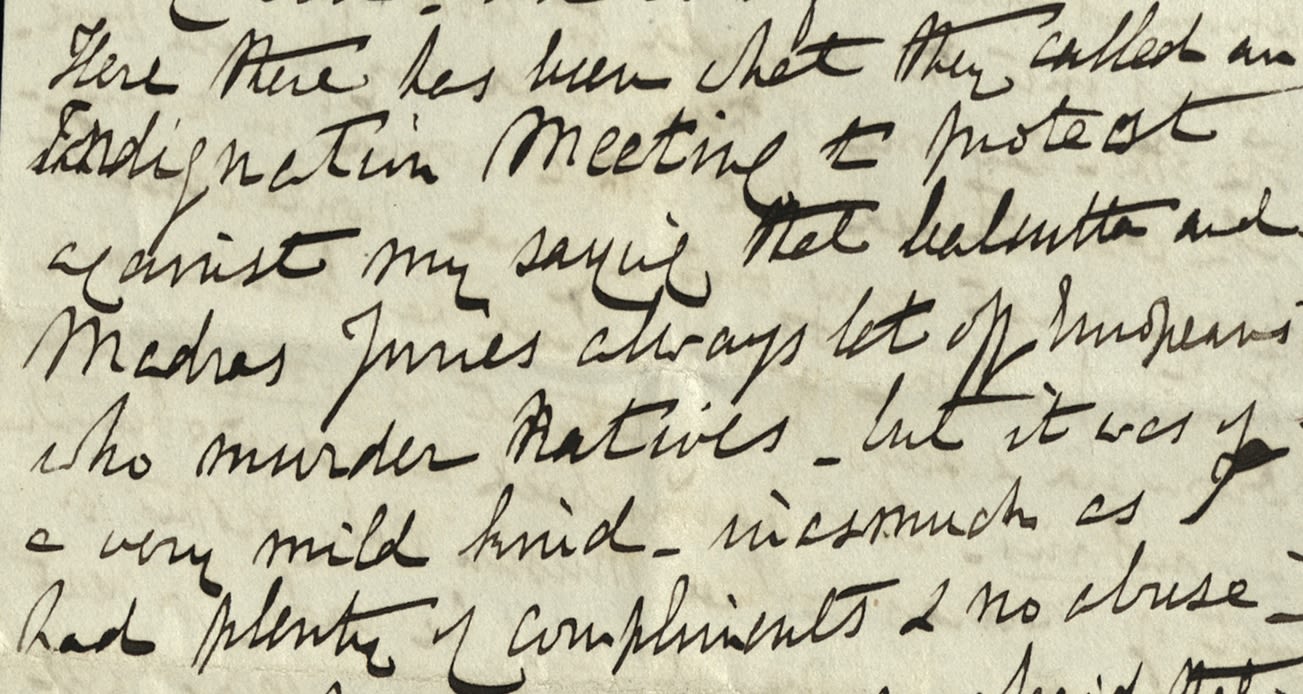 Here there has been what they called an
Indignation Meeting to protest
against my saying that Calcutta and
Madras Juries always let off Europeans
who murder Natives _ but it was of
a very mild kind _ inasmuch as I
had plenty of compliments & no abuse _